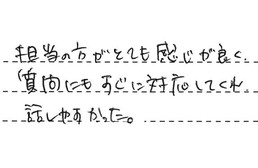 担当の方がとても感じが良く、
質問にもすぐに対応してくれ
話しやすかった。